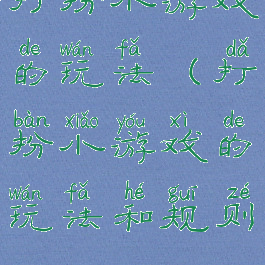 打扮小游戏
de wán fǎ dǎ
的玩法(打
bàn xiǎo yóu xì de
扮小游戏的
wán fǎ hé guī zé
玩法和规则